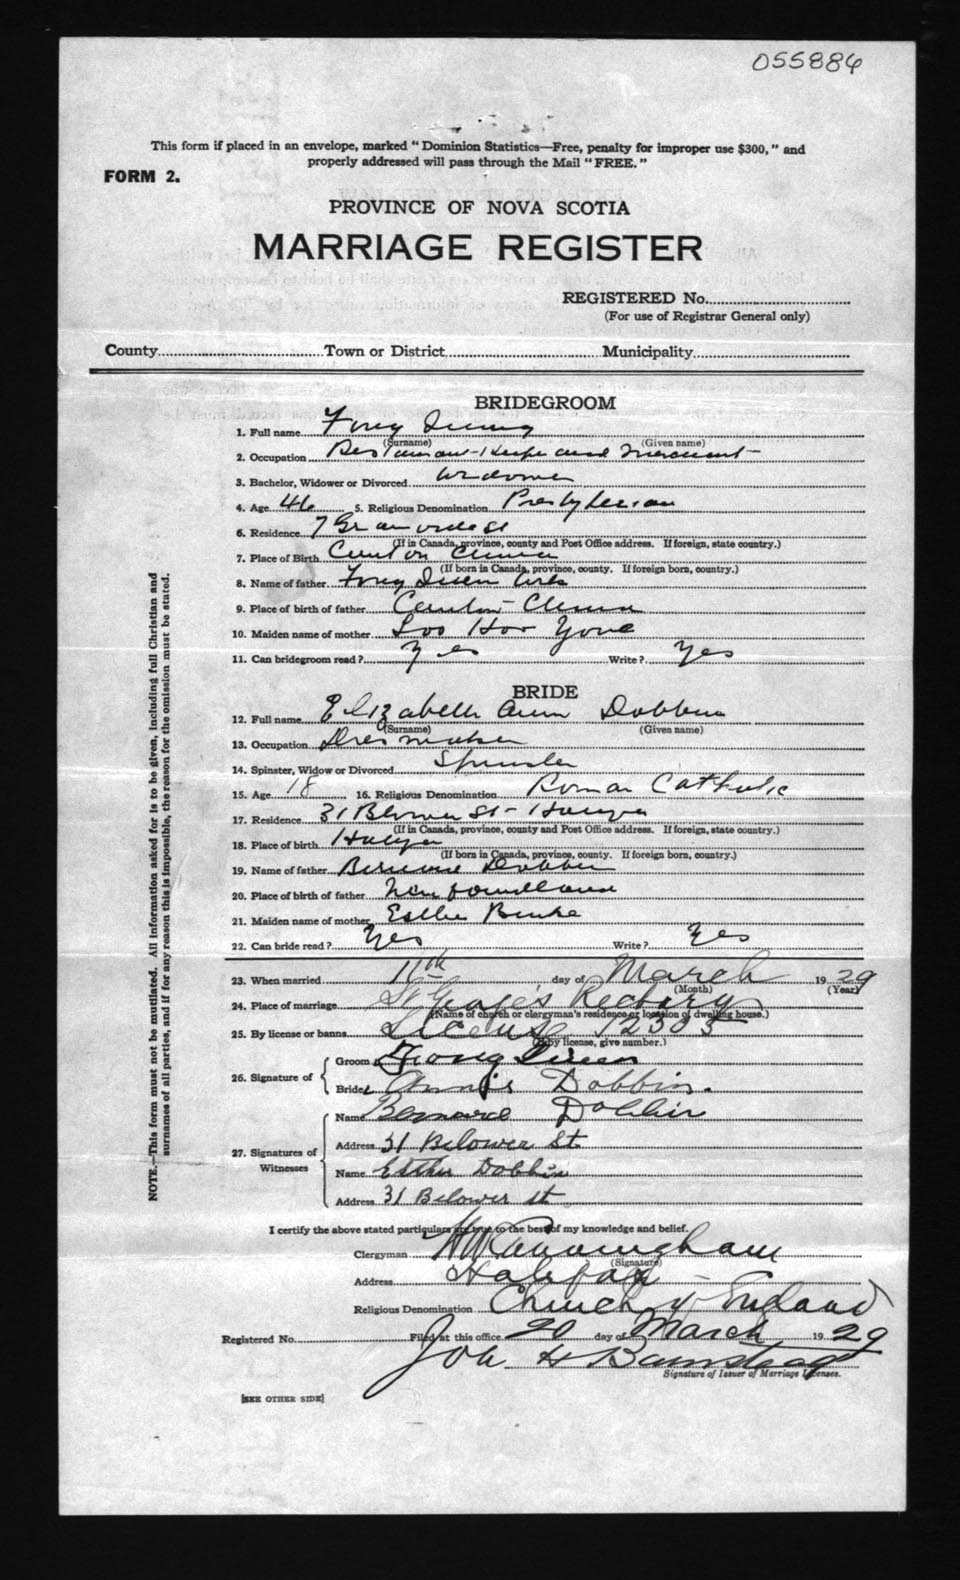 055886
This form if placed in an envelope, marked "Dominion Statistics—Free, penalty for improper use $300," and
properly addressed will pass through the Mail "FREE."
FORM 2.
PROVINCE OF NOVA SCOTIA
MARRIAGE REGISTER
REGISTERED No.
(For use of Registrar General only)
County Town or District Municipality
BRIDEGROOM
1. Full name Fong
(Surname) (Given name)
2. Occupation Restaurant-Keeper and Merchant
3. Bachelor, Widower or Divorced Widower
4. Age 46 5. Religious Denomination Presbyterian
6. Residence 7 Granville St
(If in Canada, province, county and Post Office address. If foreign, state country.)
7. Place of Birth Canton China
(If born in Canada, province, county. If foreign born, country.)
8. Name of father Fong
9. Place of birth of father Canton - China
10. Maiden name of mother Loo Hor Yone
11. Can bridegroom read? Yes Write? Yes
BRIDE
12. Full name Elizabeth Ann Dobbin
(Surname) (Given name)
13. Occupation Dressmaker
14. Spinster, Widow or Divorced Spinster
15. Age 18 16. Religious Denomination Roman Catholic
17. Residence 31 Blower St - Halifax
(If in Canada, province, county and Post Office address. If foreign, state country.)
18. Place of birth Halifax
(If born in Canada, province, county. If foreign born, country.)
19. Name of father Bernard Dobbin
20. Place of birth of father Newfoundland
21. Maiden name of mother Esther Burke
22. Can bride read? Yes Write? Yes
23. When married 11th day of March 1929
(Month) (Year)
24. Place of marriage St George's Rectory
(Name of church or clergyman's residence or location of dwelling house.)
25. By license or banns License 12305
(If by license, give number.)
26. Signature of
Groom Fong
Bride Annie Dobbin.
27. Signatures of Witnesses
Name Bernard Dobbin
Address 31 Belower St
Name Esther Dobbin
Address 31 Belower St
I certify the above stated particulars are true to the best of my knowledge and belief.
Clergyman H W Cunningham
(Signature)
Address Halifax
Religious Denomination Church of England
Registered No. Filed at this office 20 day of March 1929
Joh H Barnstead
Signature of Issuer of Marriage Licenses.
[SEE OTHER SIDE]
NOTE.—This form must not be mutilated. All information asked for is to be given, including full Christian and
surnames of all parties, and if for any reason this is impossible, the reason for the omission must be stated.